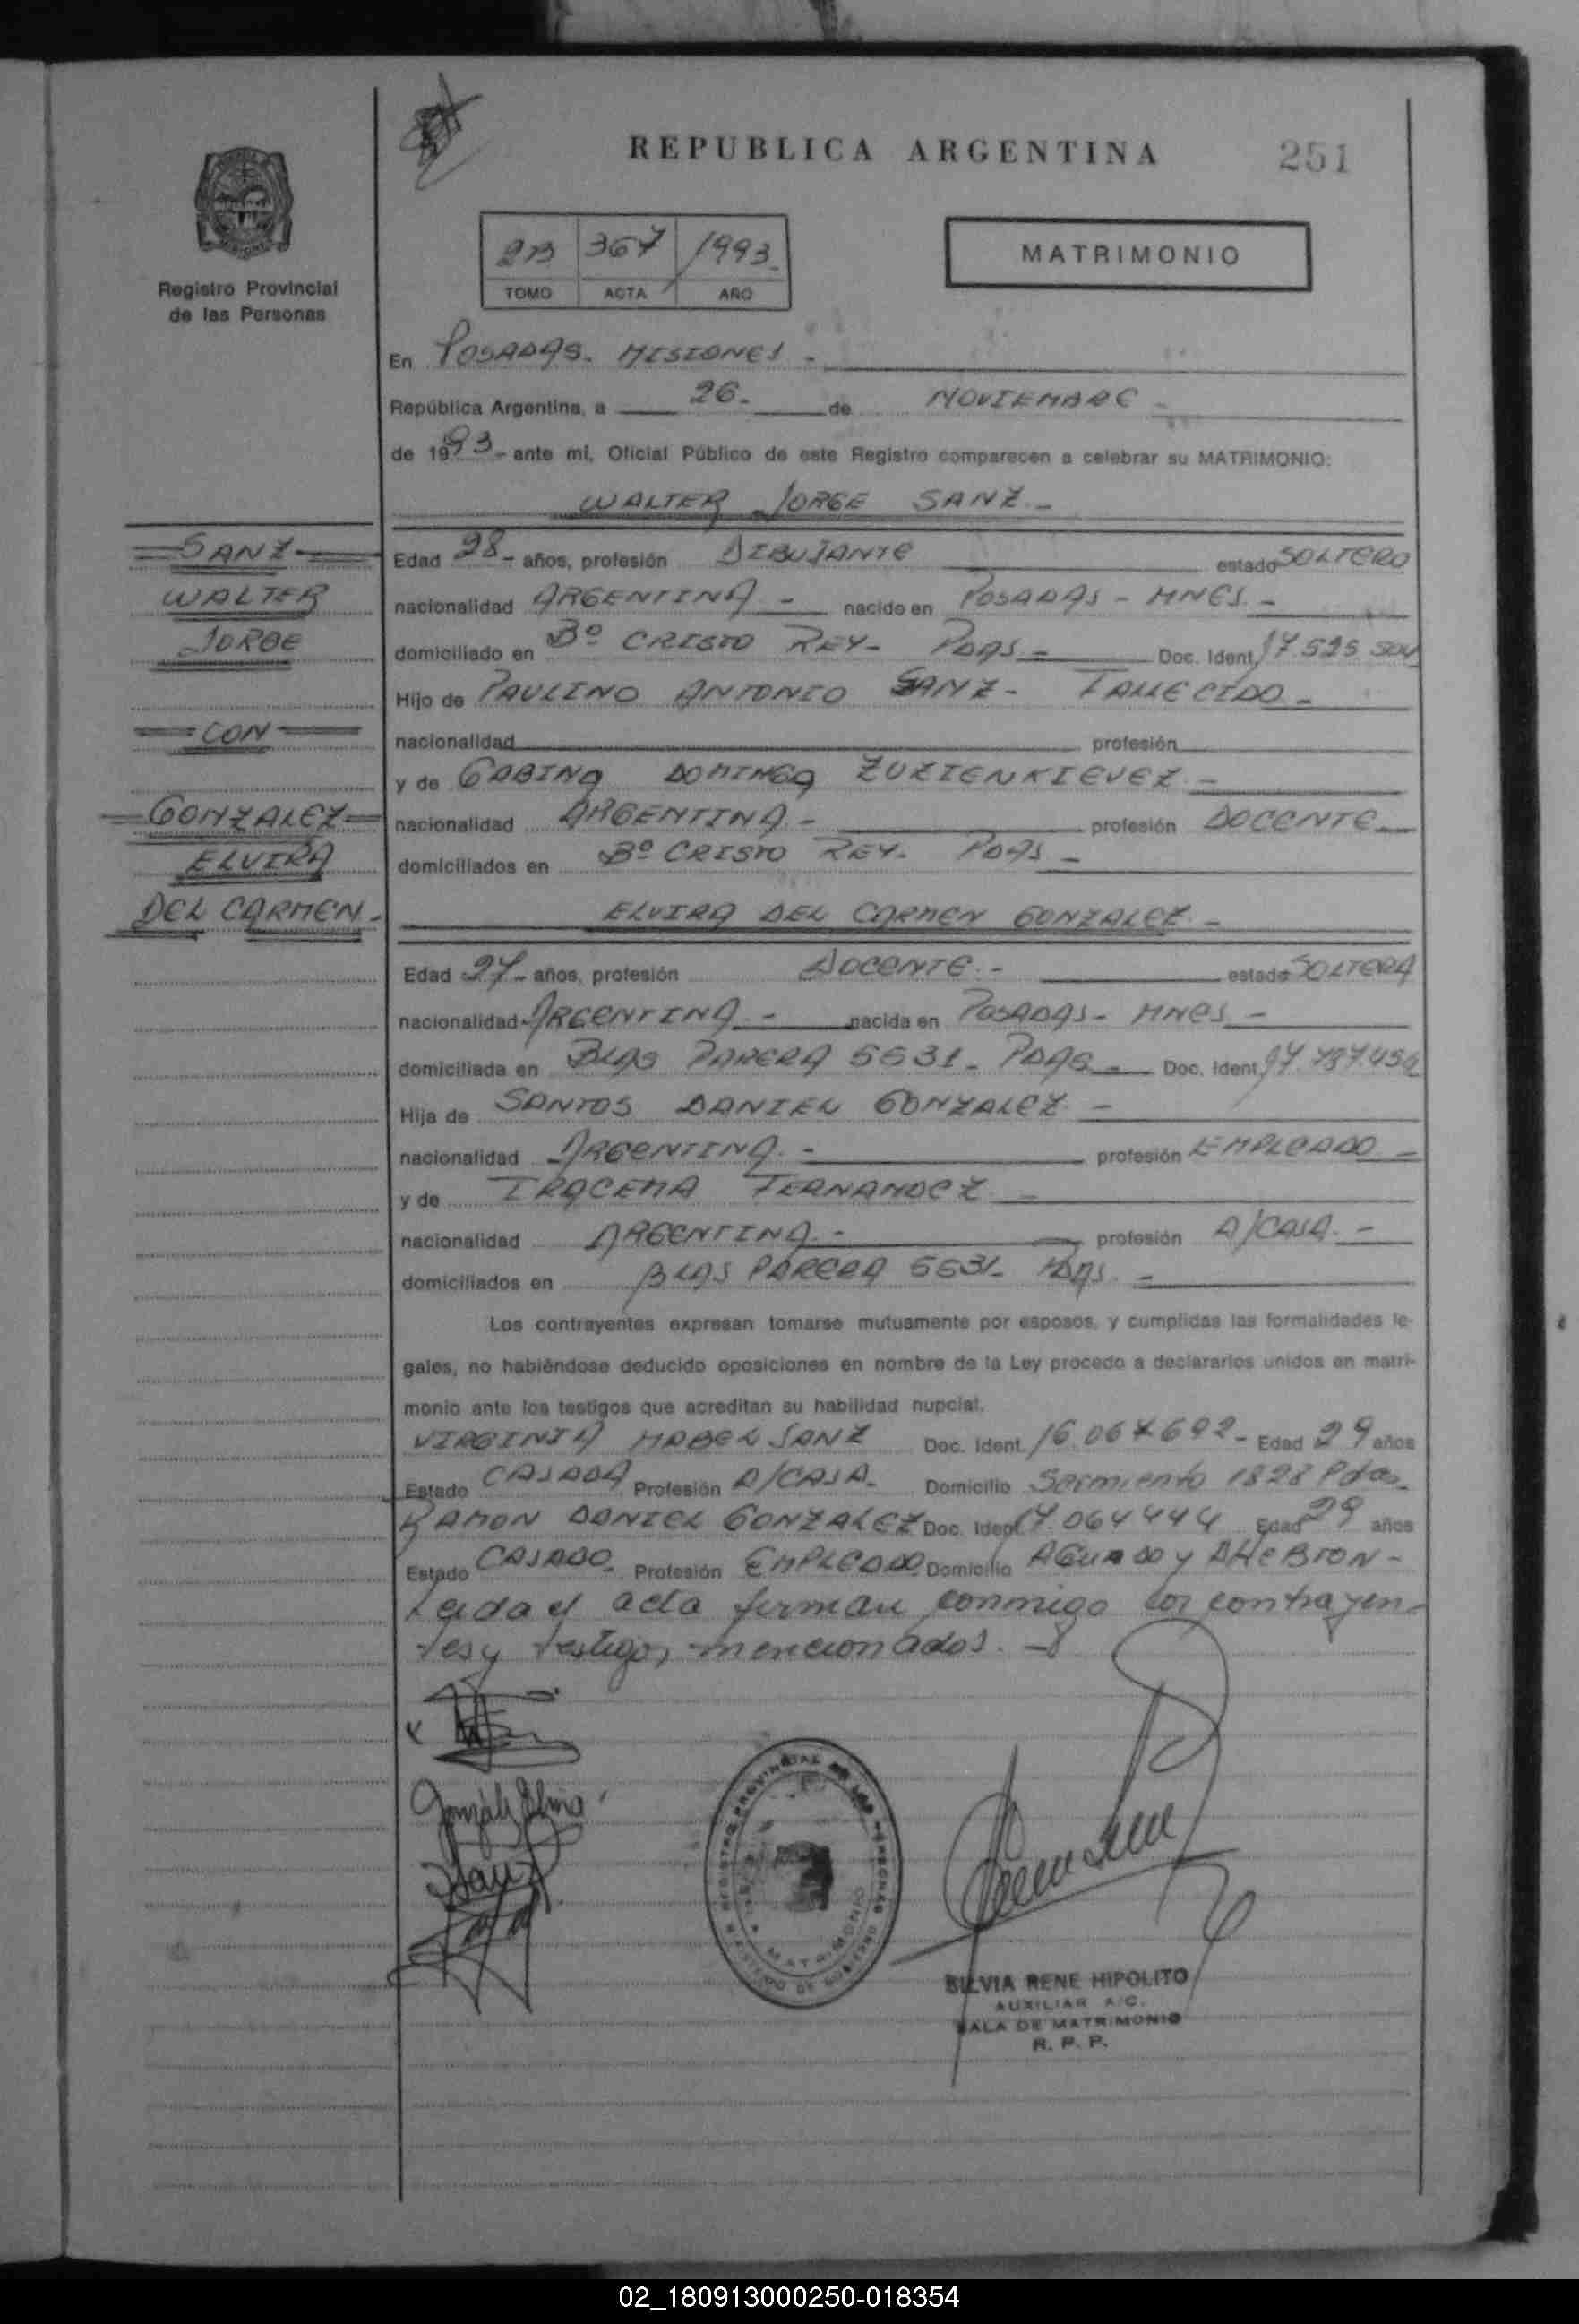 REPUBLICA ARGENTINA
251
Registro Provincial
de las Personas
2B 367 1993
TOMO ACTA AÑO
MATRIMONIO
En POSADAS - MISIONES -
República Argentina, a 26 - de NOVIEMBRE -
de 1993 - ante mi, Oficial Público de este Registro comparecen a celebrar su MATRIMONIO:
WALTER JORGE SANZ -
SANZ
WALTER
JORGE
CON
GONZALEZ
ELVIRA
DEL CARMEN -
Edad 28 - años, profesión DIBUJANTE estado SOLTERO
nacionalidad ARGENTINA - nacido en POSADAS - MNES -
domiciliado en Bº CRISTO REY - PDAS - Doc. Ident. 17.525.504
Hijo de PAULINO ANTONIO SANZ - FALLECIDO -
nacionalidad profesión
y de GABINA DOMINGA ZUZIENKIEVEZ -
nacionalidad ARGENTINA - profesión DOCENTE
domiciliados en Bº CRISTO REY - PDAS -
ELVIRA DEL CARMEN GONZALEZ -
Edad 27 - años, profesión DOCENTE - estado SOLTERA
nacionalidad ARGENTINA - nacida en POSADAS - MNES -
domiciliada en BLAS PARERA 5531 - PDAS - Doc. Ident.
Hija de SANTOS DANIEL GONZALEZ -
nacionalidad ARGENTINA - profesión EMPLEADO -
y de IRACEMA FERNANDEZ -
nacionalidad ARGENTINA - profesión A/CASA -
domiciliados en BLAS PARERA 5531 - PDAS -
Los contrayentes expresan tomarse mutuamente por esposos, y cumplidas las formalidades le-
gales, no habiéndose deducido oposiciones en nombre de la Ley procedo a declararlos unidos en matri-
monio ante los testigos que acreditan su habilidad nupcial.
VIRGINIA MABEL SANZ Doc. Ident. 16.067.692 - Edad 29 años
Estado CASADA Profesión A/CASA - Domicilio Sarmiento 1828 Pdas -
RAMON DANIEL GONZALEZ Doc. Ident. 17.064.444 Edad 29 años
Estado CASADO - Profesión EMPLEADO Domicilio AGUADO y ALLEBION -
Leida el acta firman conmigo los contrayen-
tes y testigos mencionados. -
González Elvira
Sanz
REGISTRO PROVINCIAL DE LAS PERSONAS
MINISTERIO DE GOBIERNO
MATRIMONIO
SILVIA RENE HIPOLITO
AUXILIAR A/C.
SALA DE MATRIMONIO
R. P. P.
02_180913000250-018354